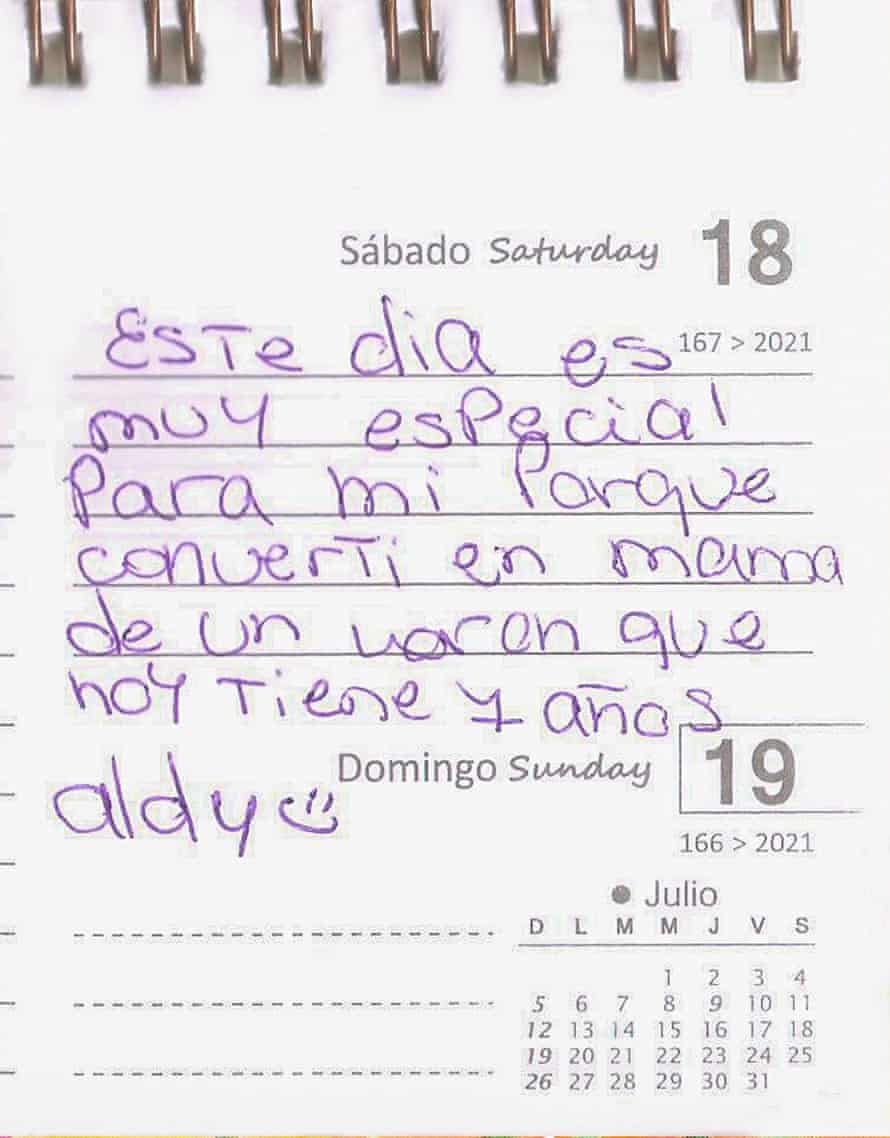 Sábado Saturday 18
Este dia es 167 > 2021
muy especial
Para mi Porque
converti en mama
de un varon que
hoy tiene 7 años
Domingo Sunday 19
aldy
166 > 2021
Julio
D L M M J V S
1 2 3 4
5 6 7 8 9 10 11
12 13 14 15 16 17 18
19 20 21 22 23 24 25
26 27 28 29 30 31